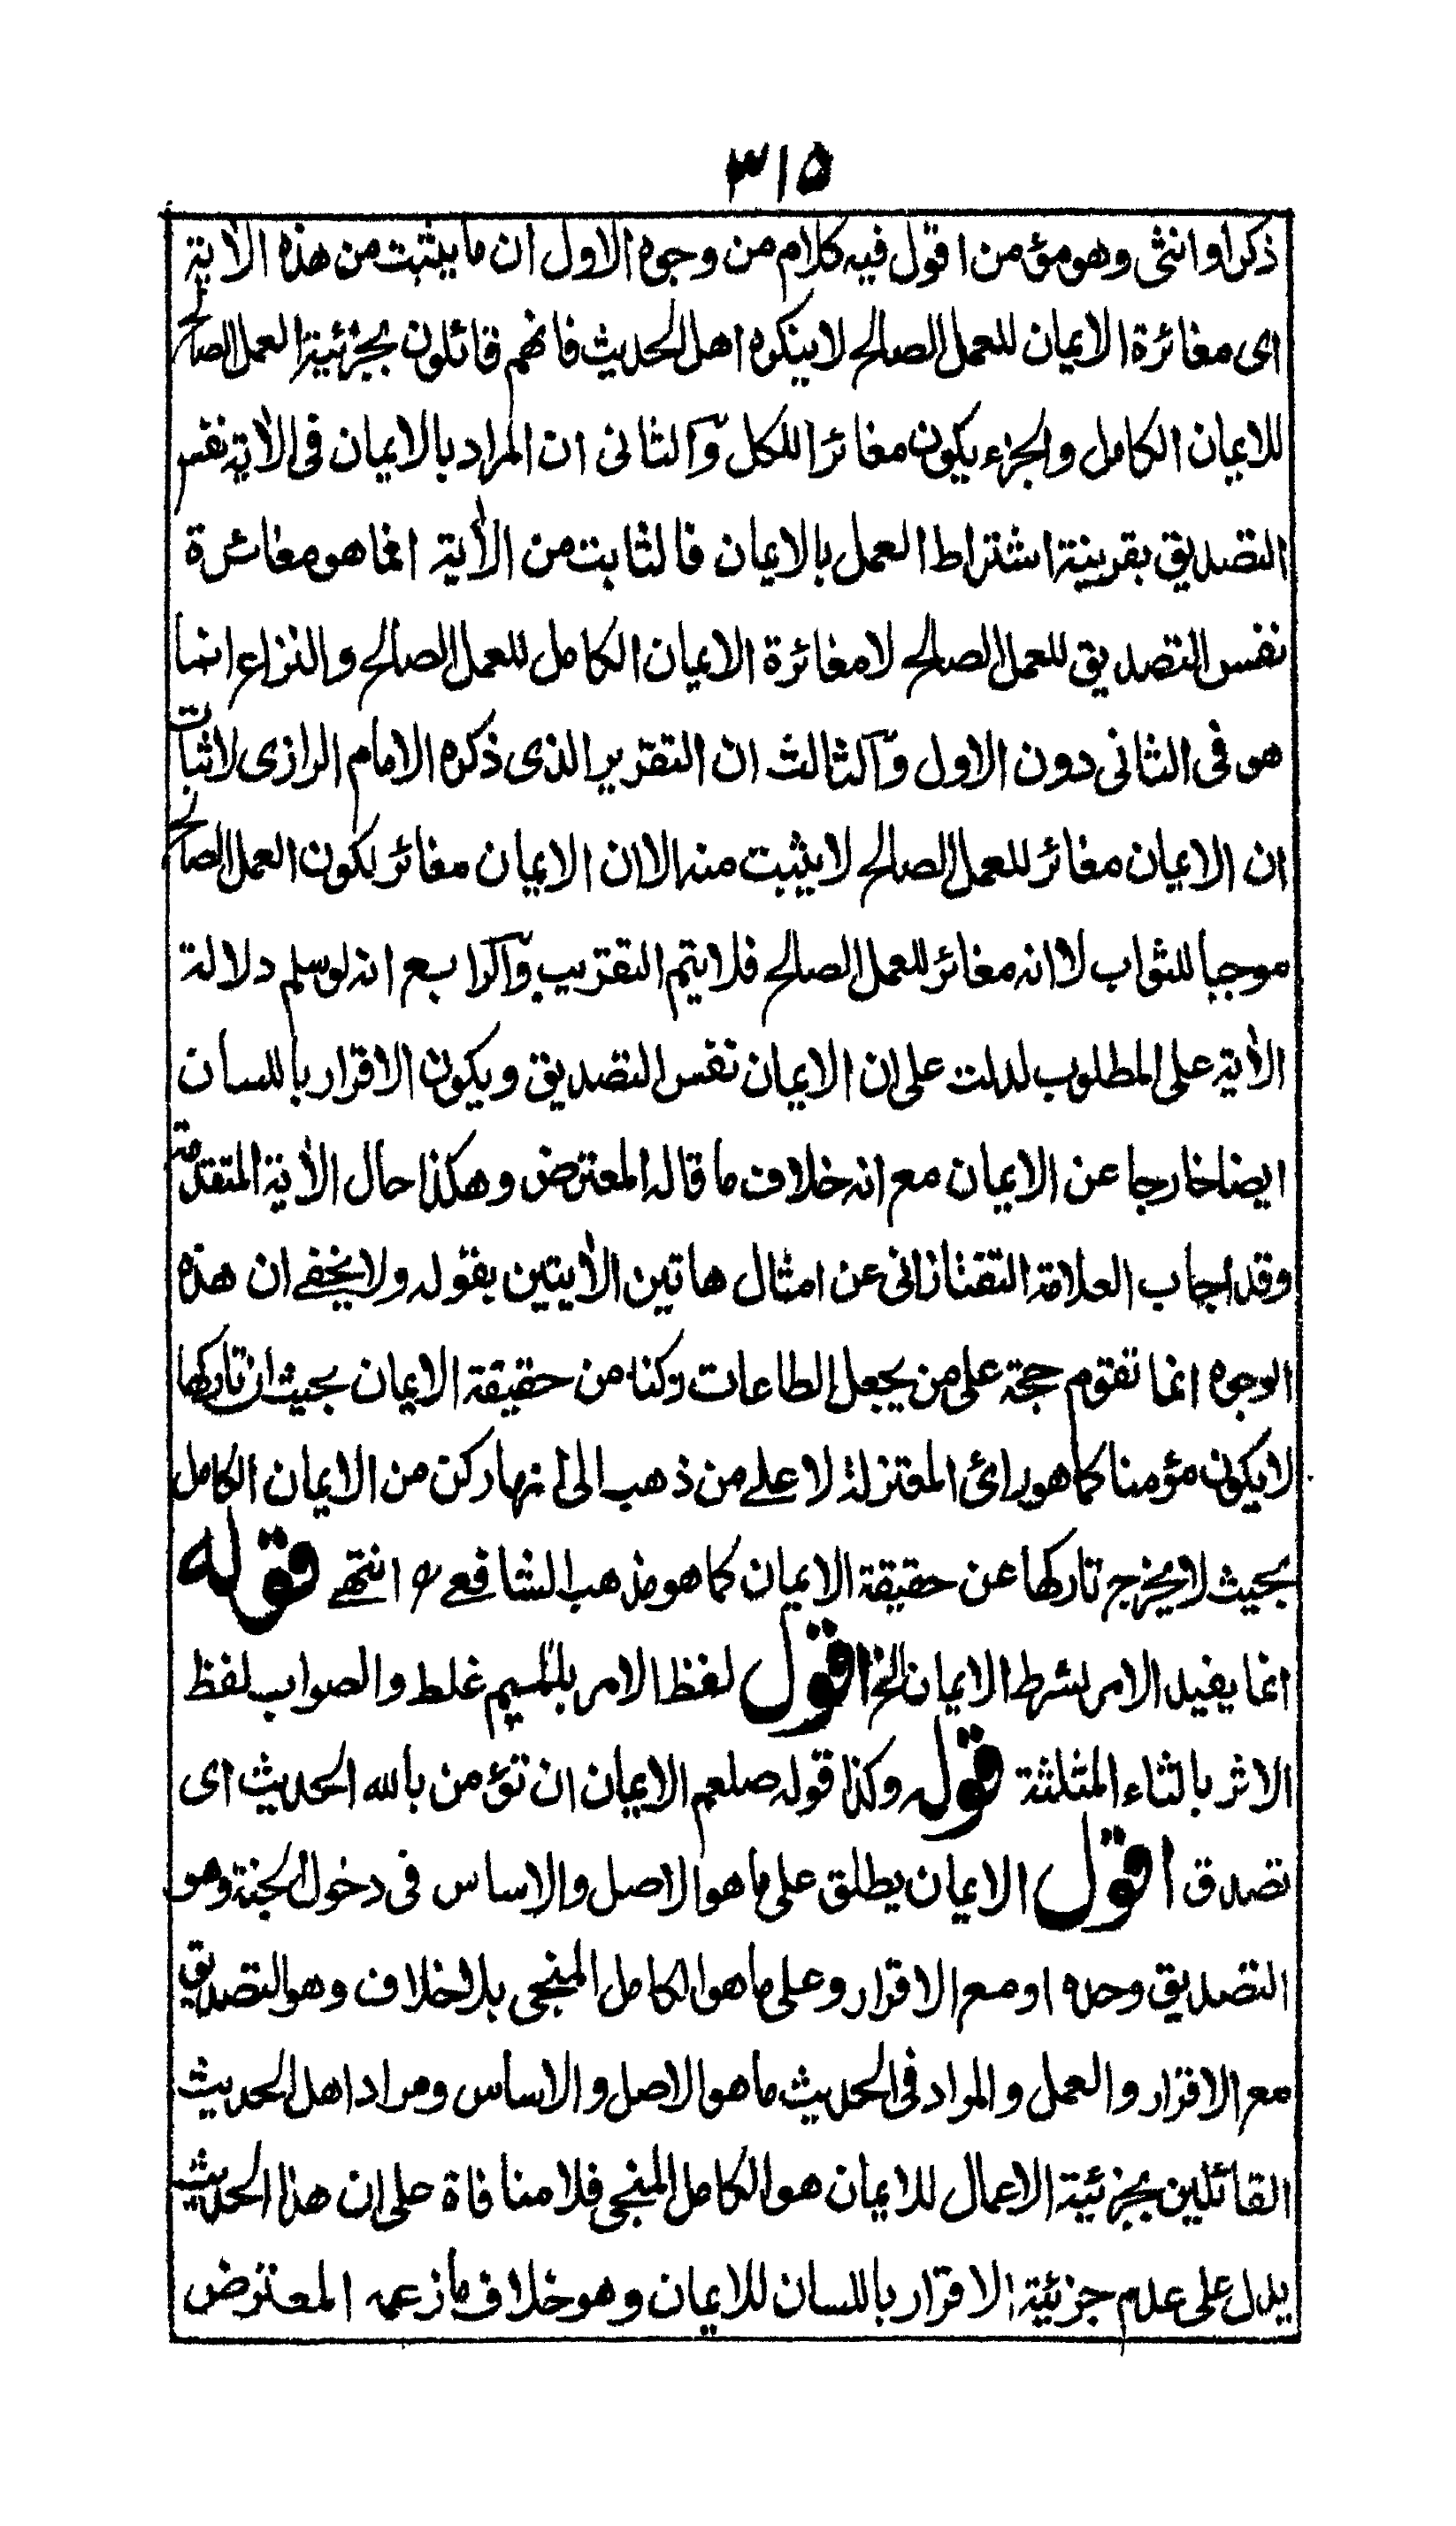 ٣١٥
ذكر او انثى وهو مؤمن اقول فيه كلام من وجوه الاول ان ما يثبت من هذه الأية
اى مغائرة الايمان للعمل الصالح لا ينكره اهل الحديث فانهم قائلون بجزئية العمل الصالح
للايمان الكامل والجزء يكون مغائرا للكل والثانى ان المراد بالايمان فى الأية نفس
التصديق بقرينة اشتراط العمل بالايمان فالثابت من الأية انما هو مغائرة
نفس التصديق للعمل الصالح لا مغائرة الايمان الكامل للعمل الصالح والنزاع انما
هو فى الثانى دون الاول والثالث ان التقرير الذى ذكره الامام الرازى لاثبات
ان الايمان مغائر للعمل الصالح لا يثبت منه الا ان الايمان مغائر لكون العمل الصالح
موجبا للثواب لا انه مغائر للعمل الصالح فلا يتم التقريب والرابع انه لو سلم دلالة
الأية على المطلوب لدلت على ان الايمان نفس التصديق ويكون الاقرار باللسان
ايضا خارجا عن الايمان مع انه خلاف ما قاله المعترض وهكذا حال الأية المتقدمة
وقد اجاب العلامة التفتازانى عن امثال هاتين الأيتين بقوله ولا يخفے ان هذه
الوجوه انما تقوم حجة على من يجعل الطاعات ركنا من حقيقة الايمان بحيث ان تاركها
لا يكون مؤمنا كما هو رائ المعتزلة لا علے من ذهب الى انها ركن من الايمان الكامل
بحيث لا يخرج تاركها عن حقيقة الايمان كما هو مذهب الشافعے رح انتهے قوله
انما يفيد الامر بشرط الايمان الخ اقول لفظ الامر بالميم غلط والصواب لفظ
الاثر بالثاء المثلثة قوله وكذا قوله صلعم الايمان ان تؤمن بالله الحديث اى
تصدق اقول الايمان يطلق على ما هو الاصل والاساس فى دخول الجنة وهو
التصديق وحده او مع الاقرار وعلى ما هو الكامل المنجى بلا خلاف وهو التصديق
مع الاقرار والعمل والمراد فى الحديث ما هو الاصل والاساس ومراد اهل الحديث
القائلين بجزئية الاعمال للايمان هو الكامل المنجى فلا منافاة على ان هذا الحديث
يدل على عدم جزئية الاقرار باللسان للايمان وهو خلاف ما زعمه المعترض